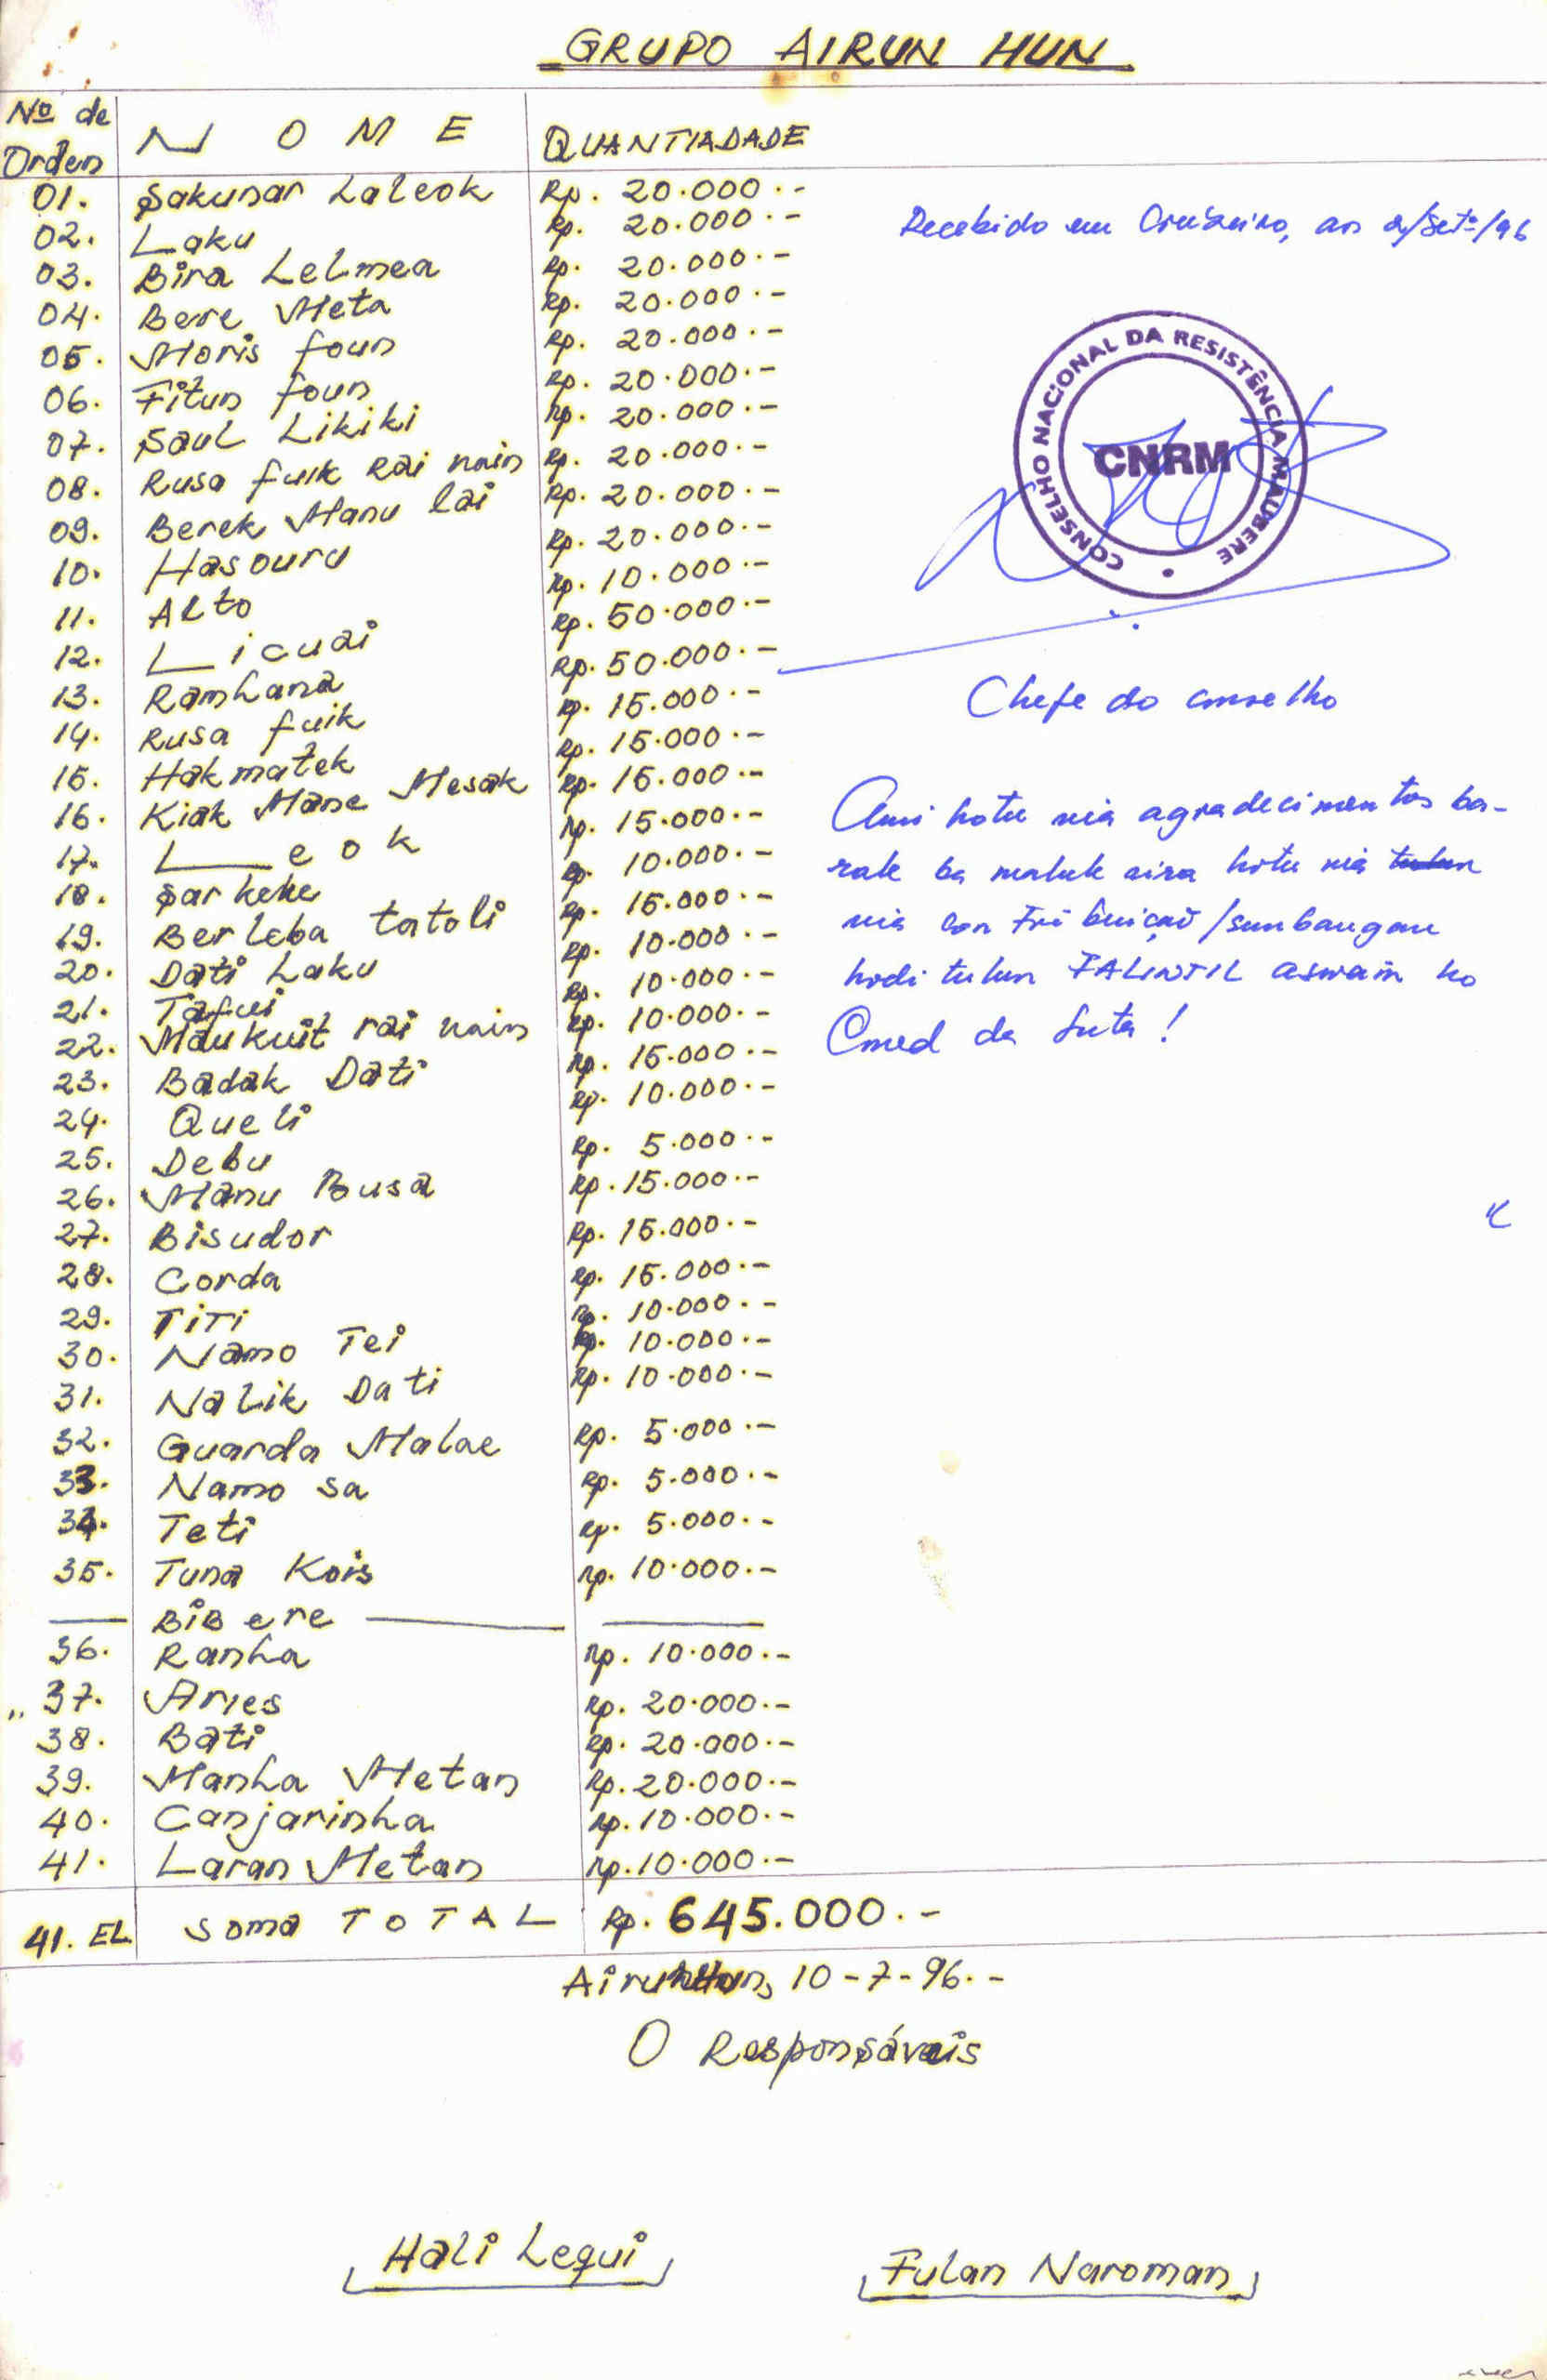 GRUPO AIRUN HUN
Nº de Orden NOME QUANTIADADE
01. Sakunar Laleok Rp. 20.000.-
02. Laku Rp. 20.000.-
03. Bira Lelmea Rp. 20.000.-
04. Bere Meta Rp. 20.000.-
05. Moris foun Rp. 20.000.-
06. Fitun foun Rp. 20.000.-
07. Saul Likiki Rp. 20.000.-
08. Rusa fuik Rai nain Rp. 20.000.-
09. Berek Manu lai Rp. 20.000.-
10. Hasouru Rp. 20.000.-
11. Alto Rp. 10.000.-
12. Licuai Rp. 50.000.-
13. Ramhana Rp. 50.000.-
14. Rusa fuik Rp. 15.000.-
15. Hakmatek Rp. 15.000.-
16. Kiak Mane Mesak Rp. 15.000.-
17. Leok Rp. 15.000.-
18. Sarkeke Rp. 10.000.-
19. Berleba tatoli Rp. 15.000.-
20. Dati Laku Rp. 10.000.-
21. Tafui Rp. 10.000.-
22. Maukuit rai nain Rp. 10.000.-
23. Badak Dati Rp. 15.000.-
24. Queli Rp. 10.000.-
25. Debu Rp. 5.000.-
26. Manu Busa Rp. 15.000.-
27. Bisudor Rp. 15.000.-
28. Corda Rp. 15.000.-
29. Titi Rp. 10.000.-
30. Namo Tei Rp. 10.000.-
31. Nalik Dati Rp. 10.000.-
32. Guarda Malae Rp. 5.000.-
33. Namo sa Rp. 5.000.-
34. Teti Rp. 5.000.-
35. Tuna Kois Rp. 10.000.-
BiBere
36. Ranha Rp. 10.000.-
37. Aries Rp. 20.000.-
38. Bati Rp. 20.000.-
39. Manha Metan Rp. 20.000.-
40. Canjarinha Rp. 10.000.-
41. Laran Metan Rp. 10.000.-
41. EL soma TOTAL Rp. 645.000.-
Recebido em Cruzeiro, aos 2/Setº/96
CONSELHO NACIONAL DA RESISTÊNCIA MAUBERE
CNRM
Chefe do conselho
Ami hotu nia agradecimentos ba-
rak ba maluk sira hotu nia tulun
nia contribuiçaõ/sumbangan
hodi tulun FALINTIL aswain ho
Comed da Luta!
Airun Hun, 10-7-96.-
O Responsáveis
Hali Lequi
Fulan Naroman